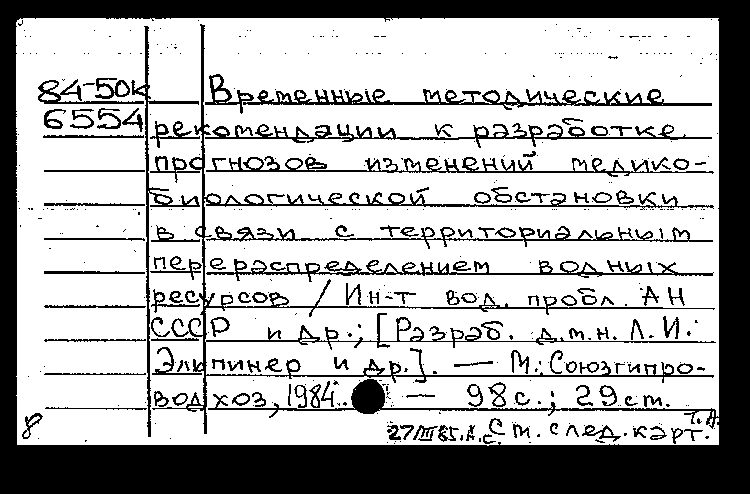 84-50к Временные методические
6554 рекомендации к разработке
прогнозов изменений медико-
биологической обстановки
в связи с территориальным
перераспределением водных
ресурсов / Ин-т вод. пробл. АН
СССР и др.; [Разраб. д.м.н. Л.И.
Эльпинер и др.]. — М.: Союзгипро-
водхоз, 1984. — 98 с.; 29 см.
Т.А.
8 27/III 85. А.С. См. след. карт.